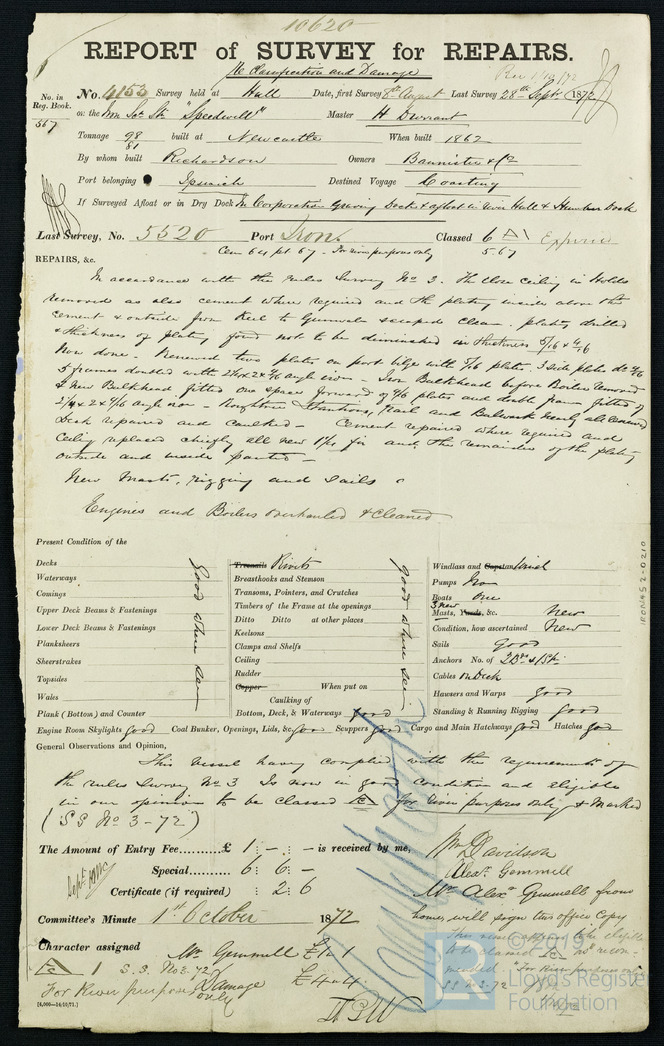 10620
REPORT of SURVEY for REPAIRS.
for Classification and Damage
Rec 1/10/72
No. in Reg. Book.
567
No. 4153 Survey held at Hull Date, first Survey 8th August Last Survey 28th Septr 1872
on the Iron Scr Str "Speedwell" Master H Durrant
Tonnage 98 built at Newcastle When built 1862
81
By whom built Richardson Owners Bannister & Co
Port belonging Ipswich Destined Voyage Coasting
If Surveyed Afloat or in Dry Dock In Corporation Graving Dock & afloat in River Hull & Humber Dock
Last Survey, No. 5520 Port Iron. Classed 6 A Expired
5.67
REPAIRS, &c.
In accordance with the rules Survey No 3. The close ceiling in Holds
removed as also cement where required and the plating inside above the
cement & outside from Keel to Gunwale scraped clean. plating drilled
& thickness of plating found not to be diminished in thickness 5/16 & 4/16
Now done. Renewed two plates on port bilge with 5/16 plates. 3 side plates do 4/16
5 frames doubled with 2 1/2 x 2 x 4/16 angle iron - Iron Bulkhead before Boiler removed
& New Bulkhead fitted one space forward of 4/16 plates and double frame fitted of
2 1/4 x 2 x 4/16 angle iron - Roughtree Stanchions, Rail and Bulwark nearly all renewed
Deck repaired and caulked - Cement repaired where required and
Ceiling replaced chiefly all new 1 1/2 fir and the remainder of the plating
outside and inside painted -
New Masts, rigging and Sails
Engines and Boilers overhauled & cleaned
Present Condition of the
Decks
Waterways
Comings
Upper Deck Beams & Fastenings
Lower Deck Beams & Fastenings
Planksheers
Sheerstrakes
Topsides
Wales
Plank (Bottom) and Counter
Good where seen
Treenails Rivets
Breasthooks and Stemson
Transoms, Pointers, and Crutches
Timbers of the Frame at the openings
Ditto Ditto at other places
Keelsons
Clamps and Shelfs
Ceiling
Rudder
Copper When put on
Caulking of
Bottom, Deck, & Waterways good
good where seen
Windlass and Capstan Winch
Pumps Iron
Boats One
3 new
Masts, Yards, &c. New
Condition, how ascertained New
Sails Good
Anchors No. of 2 Brs & 1 Str
Cables on Deck
Hawsers and Warps Good
Standing & Running Rigging good
Engine Room Skylights good Coal Bunker, Openings, Lids, &c. good Scuppers good Cargo and Main Hatchways good Hatches good
General Observations and Opinion,
This Vessel having complied with the requirements of
the rules Survey No 3 Is now in good condition and eligible
in our opinion to be classed A for river purposes only & Marked
(SS No 3-72)
The Amount of Entry Fee..........£ 1 : - : - is received by me,
Wm Davidson
Special........... 6 : 6 : -
Alexr Gemmell
Certificate (if required) : 2 : 6
Mr Alexr Gemmell from
home will sign this office Copy
Committee's Minute 1st October 1872
This vessel appears to be eligible
to be classed A as recom-
mended. For River purposes only
SS No 3-72
Character assigned Mr Gemmell £1 " 1
A 1 S.S. No 3.72 Damage £4 " 4
For River purposes only
[4,000—14/10/71.]
IRON452-0210
© 2019
LR
Lloyd's Register
Foundation